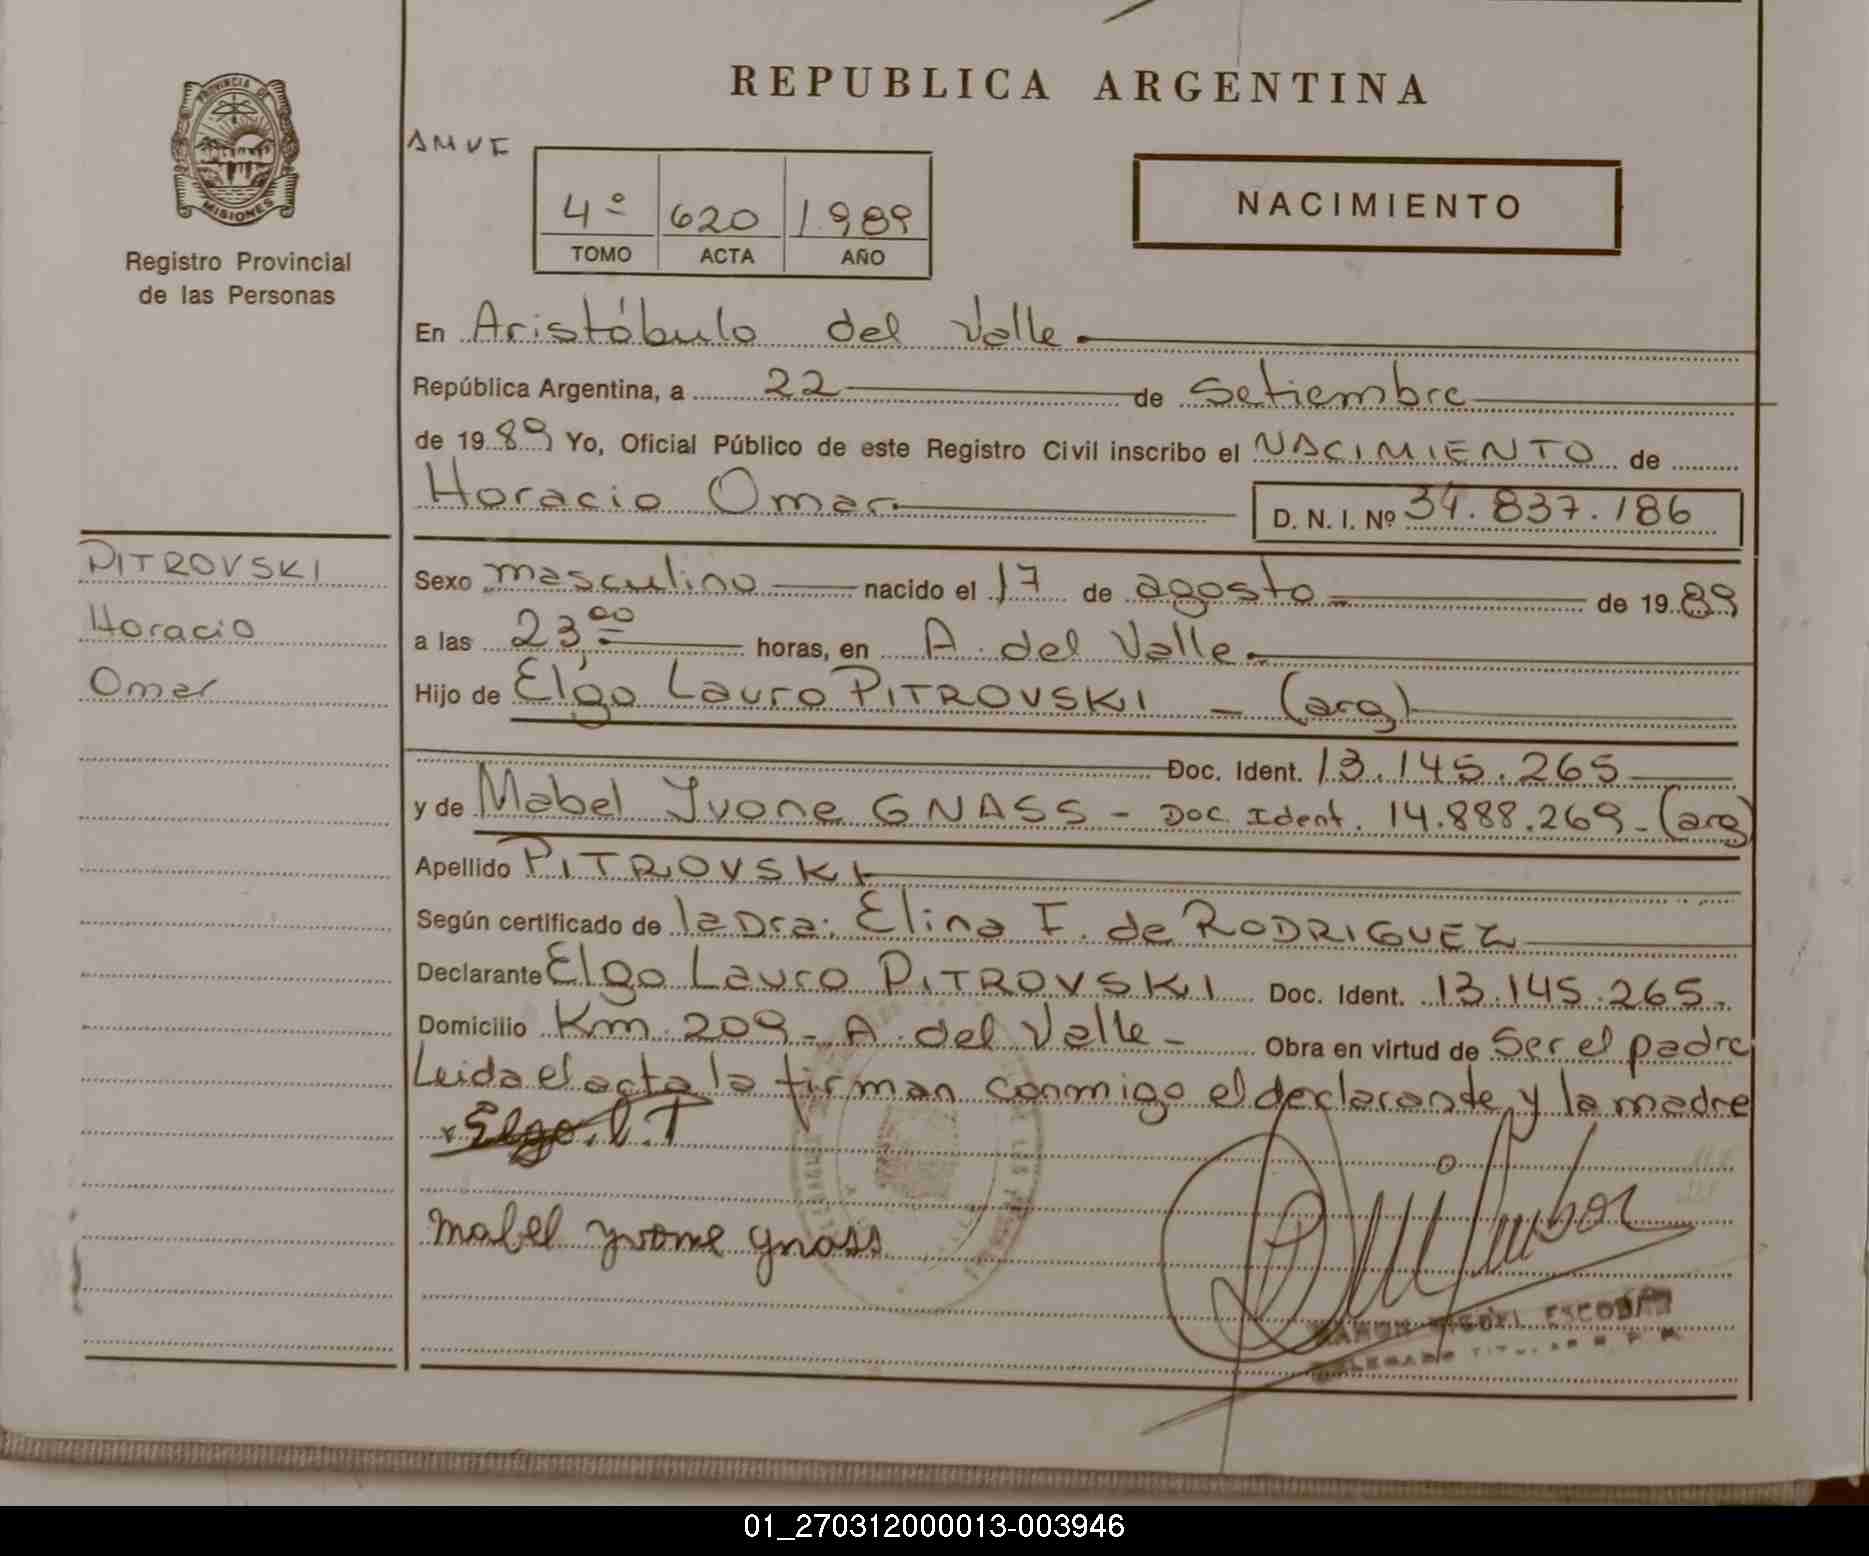 REPUBLICA ARGENTINA
PROVINCIA DE
MISIONES
Registro Provincial
de las Personas
AMVE
4º 620 1.989
TOMO ACTA AÑO
NACIMIENTO
En Aristóbulo del Valle
República Argentina, a 22 de Setiembre
de 1989 Yo, Oficial Público de este Registro Civil inscribo el NACIMIENTO de
Horacio Omar D. N. I. Nº 34.837.186
PITROVSKI
Horacio
Omar
Sexo masculino nacido el 17 de agosto de 1989
a las 23,00 horas, en A. del Valle
Hijo de Elgo Lauro PITROVSKI - (arg)
Doc. Ident. 13.145.265
y de Mabel Yvone GNASS - Doc. Ident. 14.888.269 - (arg)
Apellido PITROVSKI
Según certificado de la Dra: Elina F. de RODRIGUEZ
Declarante Elgo Lauro PITROVSKI Doc. Ident. 13.145.265.
Domicilio Km. 209 - A. del Valle - Obra en virtud de Ser el padre
Leida el acta la firman conmigo el declarante y la madre
x Elgo. l. T
Mabel yvone gnass
RAMON MIGUEL ESCOBAR
DELEGADO TITULAR R. P. P.
01_270312000013-003946